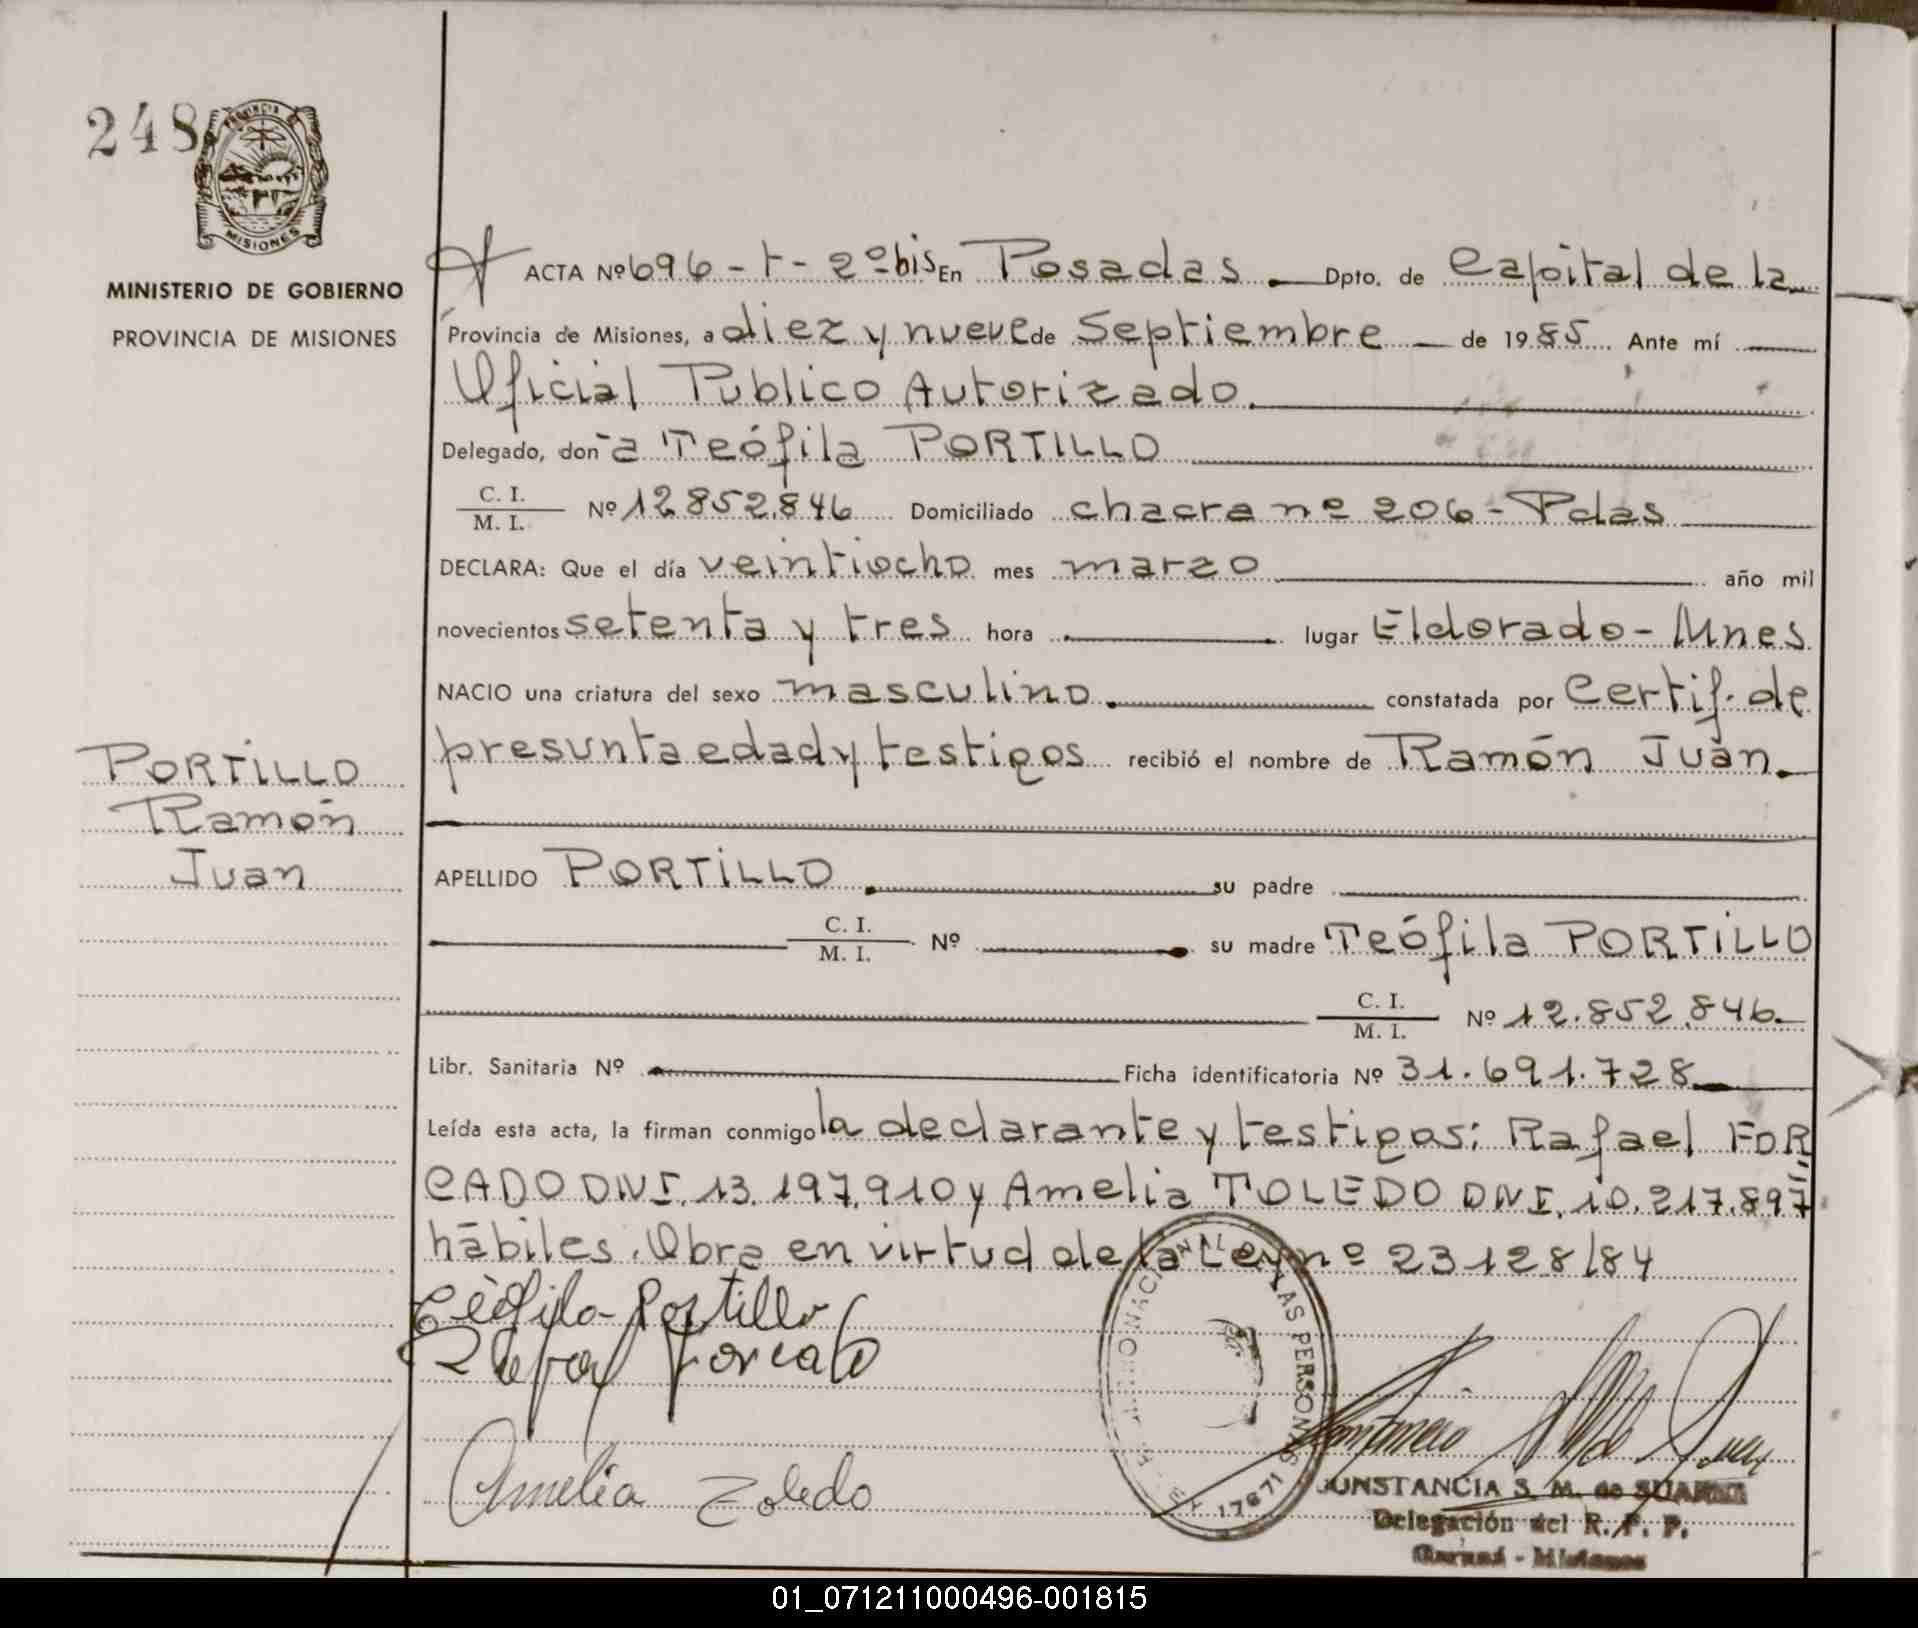 248
PROVINCIA DE
MISIONES
MINISTERIO DE GOBIERNO
PROVINCIA DE MISIONES
ACTA Nº 696 - t - 2º bis En Posadas Dpto. de Capital de la
Provincia de Misiones, a diez y nueve de Septiembre de 1985 Ante mí
Oficial Publico Autorizado.
Delegado, doña Teófila PORTILLO
C. I.
M. I. Nº 12.852.846 Domiciliado chacra nº 206 - Pdas
DECLARA: Que el día veintiocho mes marzo año mil
novecientos setenta y tres hora lugar Eldorado - Mnes
NACIO una criatura del sexo masculino. constatada por Certif. de
presunta edad y testigos recibió el nombre de Ramón Juan.
PORTILLO
Ramón
Juan
APELLIDO PORTILLO su padre
C. I.
M. I. Nº su madre Teófila PORTILLO
C. I.
M. I. Nº 12.852.846.
Libr. Sanitaria Nº Ficha identificatoria Nº 31.691.728
Leída esta acta, la firman conmigo la declarante y testigos: Rafael FOR
CADO DNI. 13.197.910 y Amelia TOLEDO DNI. 10.217.897
hábiles. Obra en virtud de la Ley nº 23128/84
Teófila Portillo
Rafael Forcado
Amelia Toledo
LAS PERSONAS
17671
CONSTANCIA S. M. de SUAREZ
Delegación del R. P. P.
Misiones
01_071211000496-001815